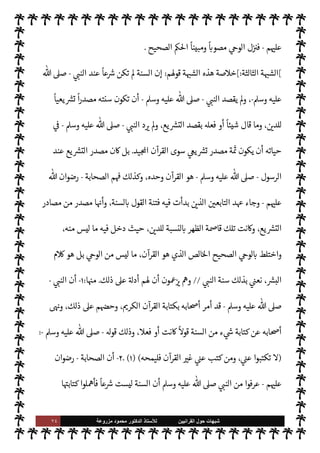 عليهم - فنزل الوحي مصوباً ومبيناً الحكم الصحيح .
]الشبهة الثالثة:]خلاصة هذه الشبهة قولهم: إن السنة لم تكن شرعاً عند النبي - صلى الله
عليه وسلم -، ولم يقصد النبي - صلى الله عليه وسلم - أن تكون سنته مصدراً تشريعياً
للدين، وما قال شيئاً أو فعله بقصد التشريع، ولم يرد النبي - صلى الله عليه وسلم - في
حياته أن يكون ثمة مصدر تشريعي سوى القرآن المجيد. بل كان مصدر التشريع عند
الرسول - صلى الله عليه وسلم - هو القرآن وحده، وكذلك فهم الصحابة - رضوان الله
عليهم - وجاء عهد التابعين الذين بدأت فيه فتنة القول بالسنة، وأنها مصدر من مصادر
التشريع، وكانت تلك قاصمة الظهر بالنسبة للدين، حيث دخل فيه ما ليس منه،
واختلط بالوحي الصحيح الخالص الذي هو القرآن، ما ليس من الوحي بل هو كلام
البشر، نعني بذلك سنة النبي // وهم يزعمون أن لهم أدلة على ذلك. منها:١- أن النبي -
صلى الله عليه وسلم - قد أمر أصحابه بكتابة القرآن الكريم، وحضهم على ذلك، ونهى
أصحابه عن كتابة شيء من السنة قولاً كانت أو فعلا، وذلك قوله - صلى الله عليه وسلم -:
(لا تكتبوا عني، ومن كتب عني غير القرآن فليمحه) (١) ٢- أن الصحابة - رضوان
عليهم - عرفوا من النبي صلى الله عليه وسلم أن السنة ليست شرعاً فأهملوا كتابتها
شبهات حول القرآنيين للأستاذ الدكتور محمود مزروعة ٢٤